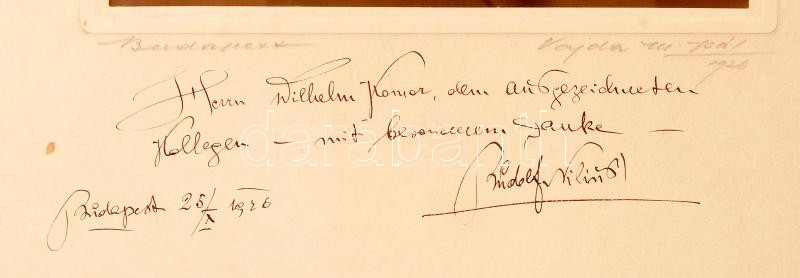 Budapest Vajda M. Pál
1926
Herrn Wilhelm Komor, dem ausgezeichneten
Kollegen – mit besonderem Danke –
Rudolf Nilius
Budapest 25/X 1926
darabanth